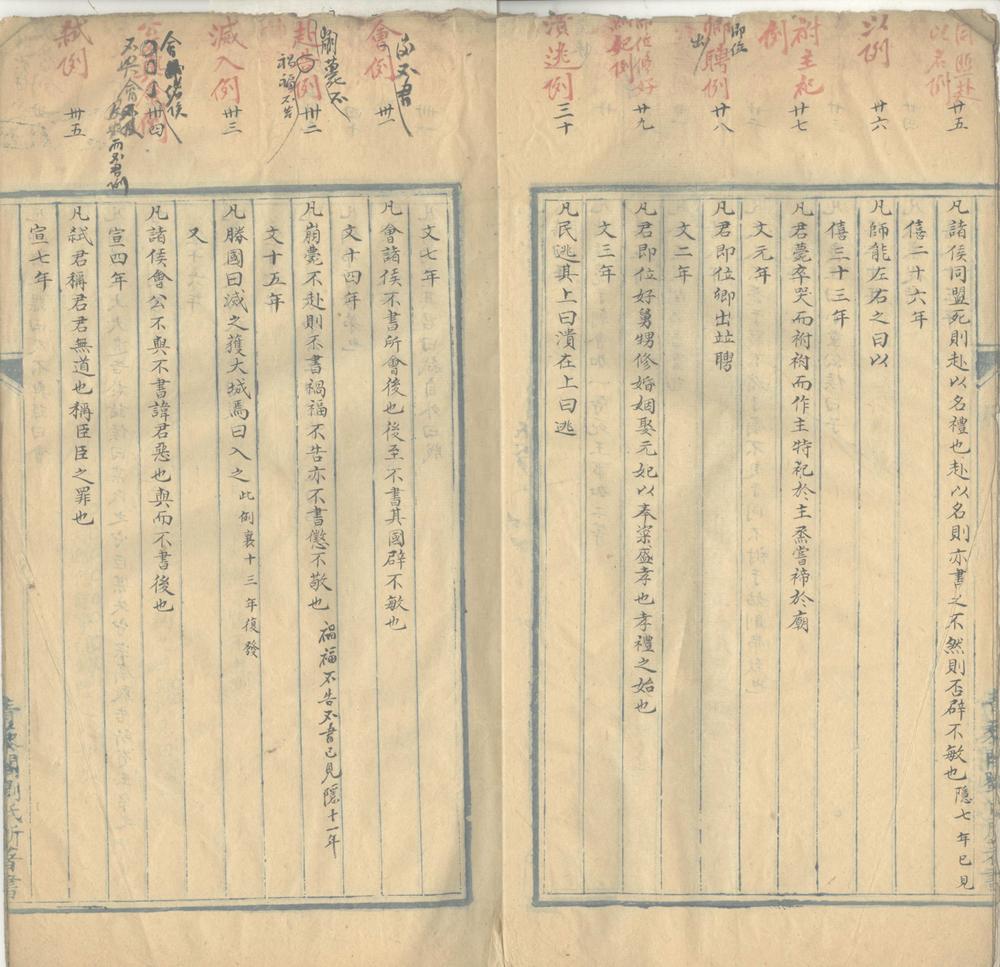 同盟赴
以名例
廿五
凡諸侯同盟死則赴以名禮也赴以名則亦書之不然則否辟不敏也隱七年已見
僖二十六年
以例
廿六
凡師能左右之曰以
僖三十三年
祔主祀
例
廿七
凡君薨卒哭而祔祔而作主特祀於主烝嘗禘於廟
文元年
即位
卿聘例
出
廿八
凡君即位卿出竝聘
文二年
即位修好
妃例
廿九
凡君即位好舅甥修婚姻娶元妃以奉粢盛孝也孝禮之始也
文三年
潰逃例
三十
凡民逃其上曰潰在上曰逃
文七年
會例
不書
卅一
凡會諸侯不書所會後也後至不書其國辟不敏也
文十四年
赴告例
崩薨不
禍福不告
卅二
凡崩薨不赴則不書禍福不告亦不書懲不敬也 禍福不告不書已見隱十一年
文十五年
滅入例
卅三
凡勝國曰滅之獲大城焉曰入之 此例襄十三年復發
又
會諸侯
不與會
與而不書例
卅四
凡諸侯會公不與不書諱君惡也與而不書後也
宣四年
弒例
卅五
凡弒君稱君君無道也稱臣臣之罪也
宣七年
青溪舊屋劉氏所著書